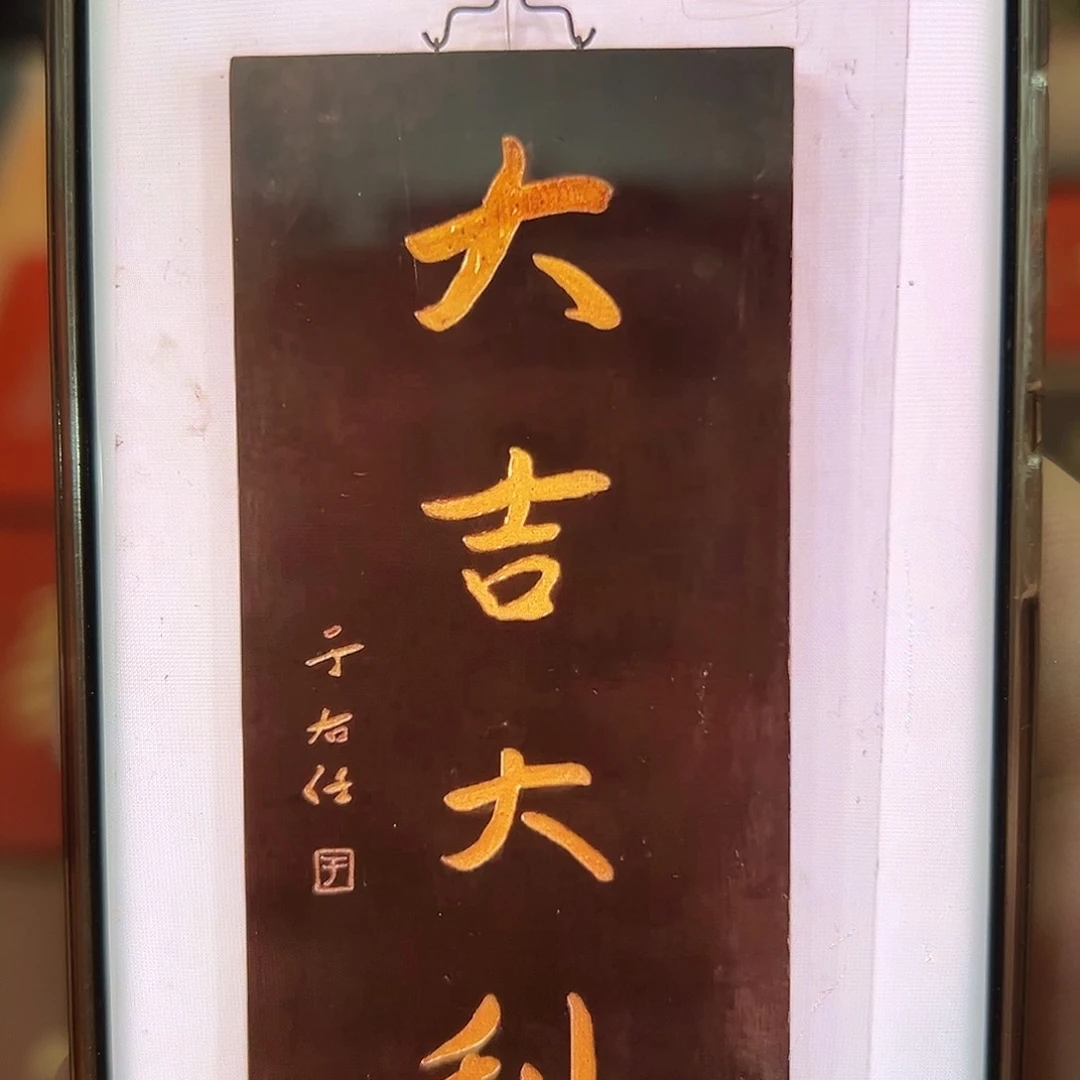 大吉大利
于右任
于